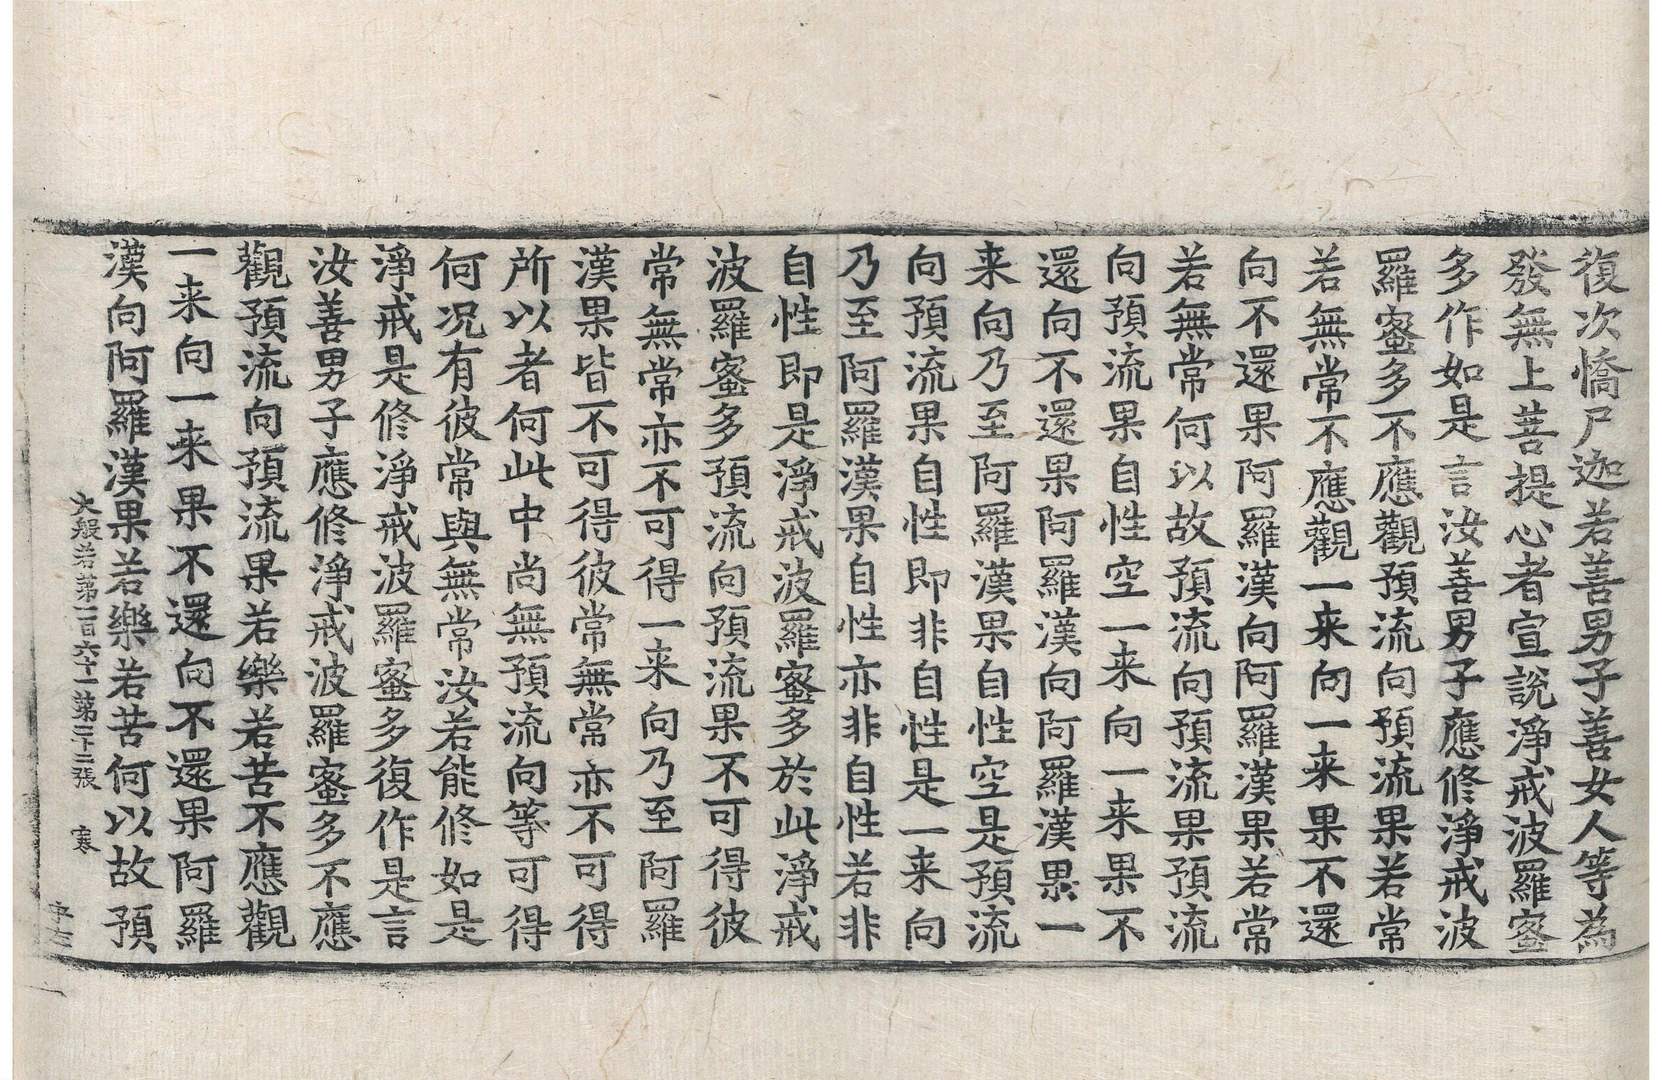 復次憍尸迦若善男子善女人等為
發無上菩提心者宣說淨戒波羅蜜
多作如是言汝善男子應修淨戒波
羅蜜多不應觀預流向預流果若常
若無常不應觀一来向一来果不還
向不還果阿羅漢向阿羅漢果若常
若無常何以故預流向預流果預流
向預流果自性空一来向一来果不
還向不還果阿羅漢向阿羅漢果一
来向乃至阿羅漢果自性空是預流
向預流果自性即非自性是一来向
乃至阿羅漢果自性亦非自性若非
自性即是淨戒波羅蜜多於此淨戒
波羅蜜多預流向預流果不可得彼
常無常亦不可得一来向乃至阿羅
漢果皆不可得彼常無常亦不可得
所以者何此中尚無預流向等可得
何况有彼常與無常汝若能修如是
淨戒是修淨戒波羅蜜多復作是言
汝善男子應修淨戒波羅蜜多不應
觀預流向預流果若樂若苦不應觀
一来向一来果不還向不還果阿羅
漢向阿羅漢果若樂若苦何以故預
大般若第一百六十一第二十二張 寒